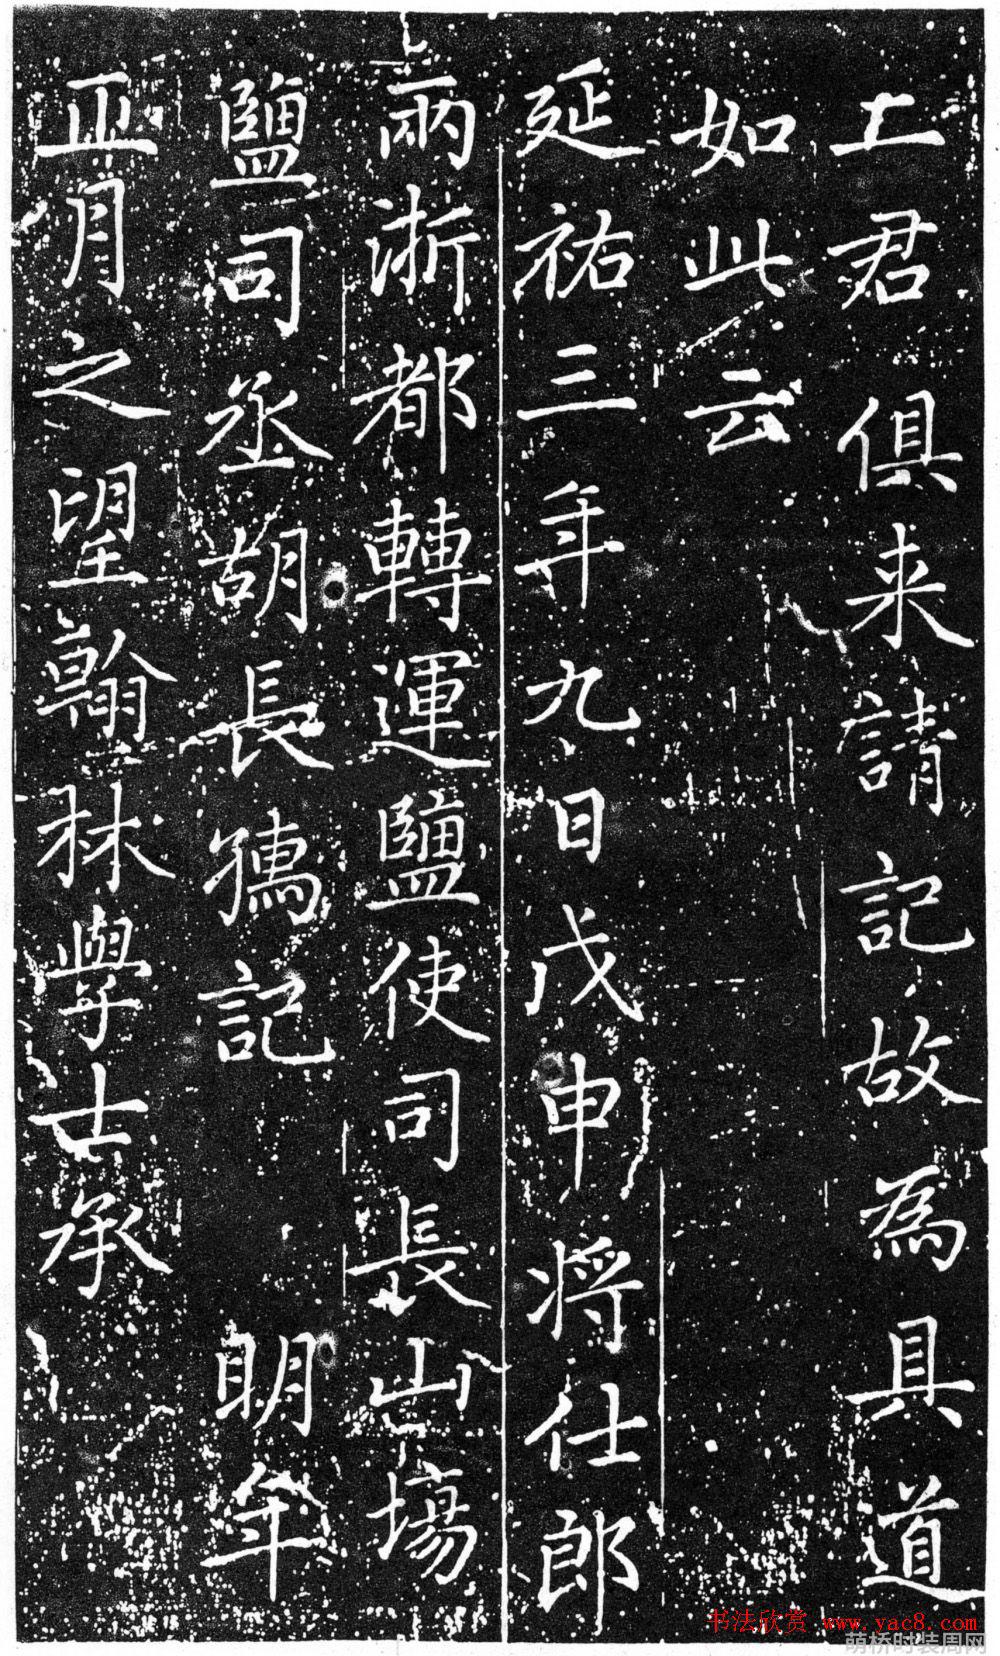 上君俱来請記故為具道
如此云
延祐三年九日戊申将仕郎
兩浙都轉運鹽使司長山場
鹽司丞胡長孺記　明年
正月之望翰林學士承
书法欣赏 www.yac8.com
萌桥时装周网